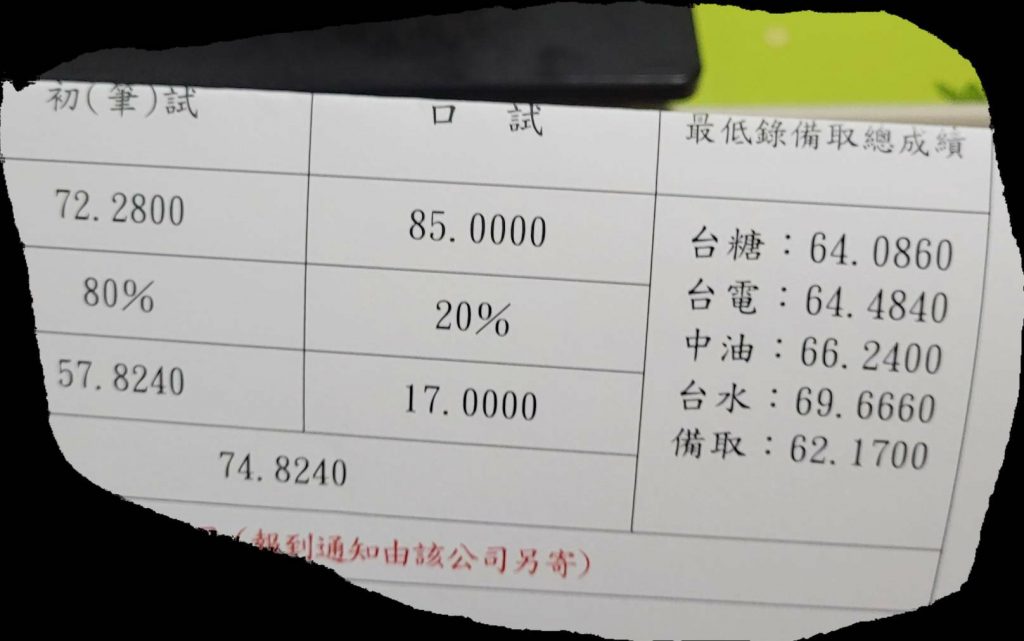 初(筆)試 口 試 最低錄備取總成績
72.2800 85.0000 台糖：64.0860
80% 20% 台電：64.4840
中油：66.2400
57.8240 17.0000 台水：69.6660
備取：62.1700
74.8240
(報到通知由該公司另寄)